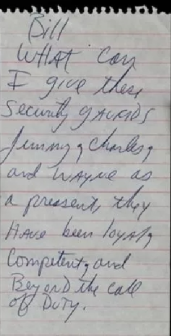 Bill
WHAT can
I give these
Security gAURDS
Jimmy, Charles,
and WAyne as
a present, they
HAVE been loyal,
Competent, and
Beyond the call
of Duty.